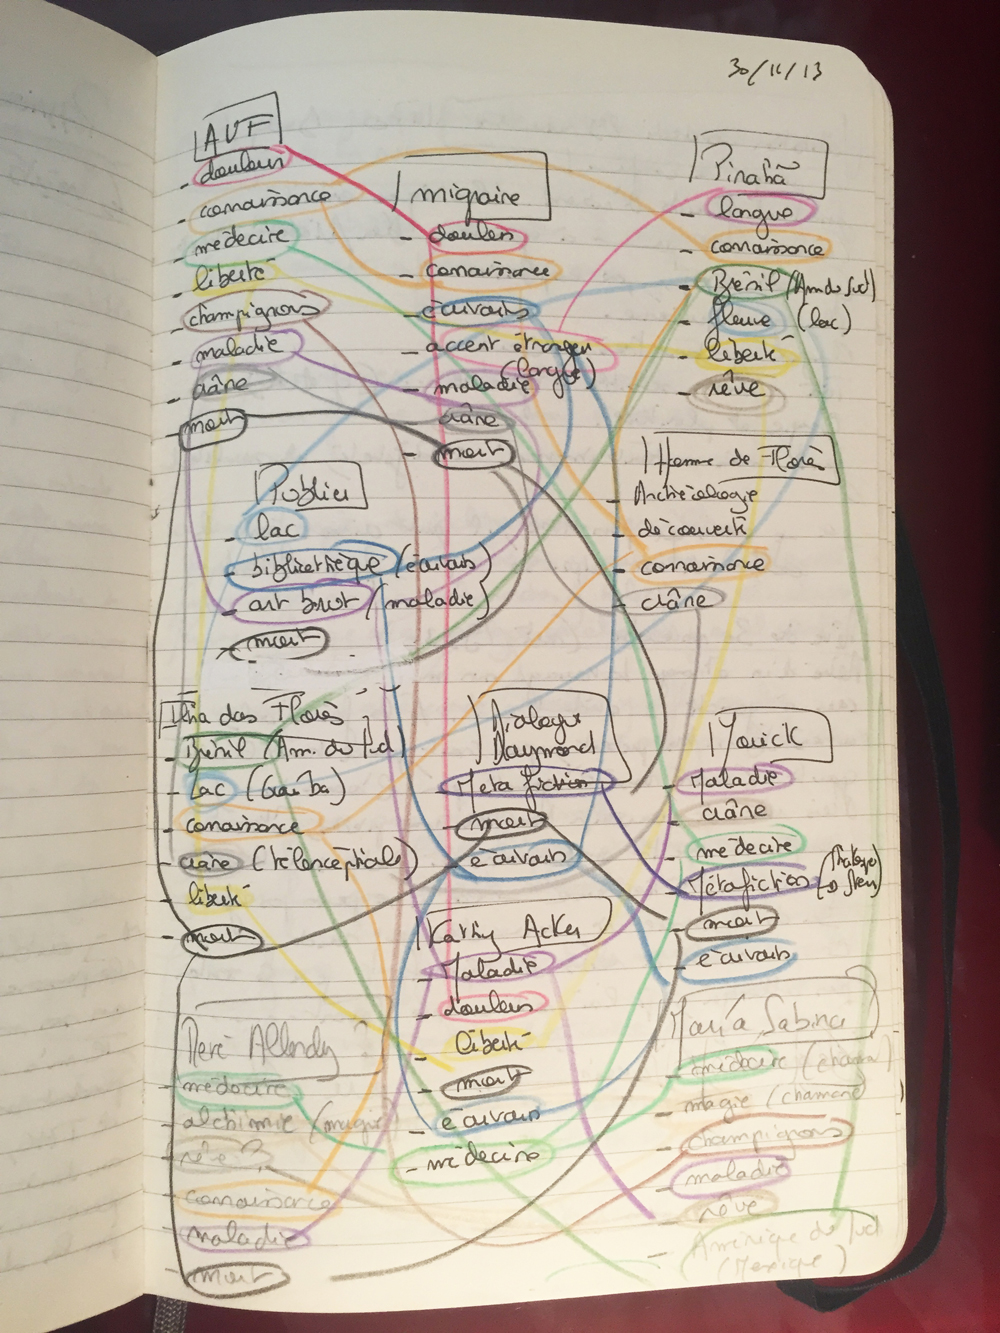 30/11/13
AVF
- douleur
- connaissance
- médecine
- liberté
- champignons
- maladie
- crâne
- mort
migraine
- douleur
- connaissance
- écrivains
- accent étranger
(langue)
- maladie
- crâne
- mort
Pirahã
- langue
- connaissance
- Brésil (Am du Sud)
- fleuve (lac)
- liberté
- rêve
Publier
- lac
- bibliothèque (écrivains)
- art brut (maladie)
- mort
Homme de Florès
- Archéologie
- découverte
- connaissance
- crâne
Ilha das Flores
- Brésil (Am. du Sud)
- Lac (Guaíba)
- connaissance
- crâne (télencéphale)
- liberté
- mort
Dialogue
Raymond
- Méta fiction
- mort
- écrivains
Yorick
- Maladie
- crâne
- médecine
- Métafiction
- mort
- écrivains
Kathy Acker
- Maladie
- douleur
- liberté
- mort
- écrivain
- médecine
René Allendy
- médecine
- alchimie (magie)
- rêve ?
- connaissance
- maladie
- mort
María Sabina
- médecine (chaman)
- magie (chamane)
- champignons
- maladie
- rêve
- Amérique du Sud
(Mexique)